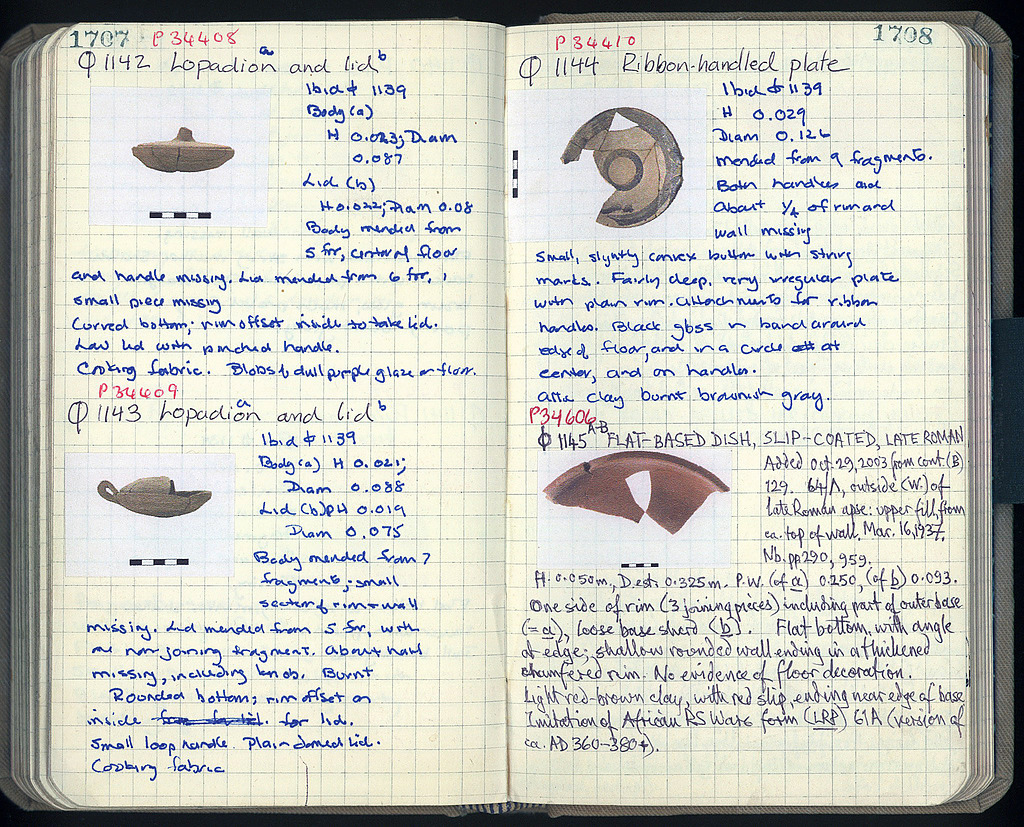 1707 P 34408
Φ 1142 Lopadion a and lid b
Ibid Φ 1139
Body (a)
H 0.023; Diam
0.087
Lid (b)
H 0.022; Diam 0.08
Body mended from
5 fr, central floor
and handle missing. Lid mended from 6 fr, 1
small piece missing
Curved bottom; rim offset inside to take lid.
Low lid with pinched handle.
Cooking fabric. Blobs of dull purple glaze on floor.
P 34409
Φ 1143 Lopadion a and lid b
Ibid Φ 1139
Body (a) H 0.021;
Diam 0.088
Lid (b) PH 0.019
Diam 0.075
Body mended from 7
fragments; small
section of rim + wall
missing. Lid mended from 5 fr, with
one non joining fragment. About half
missing, including knob. Burnt
Rounded bottom; rim offset on
inside for lid.
Small loop handle. Plain domed lid.
Cooking fabric
P 34410 1708
Φ 1144 Ribbon-handled plate
Ibid Φ 1139
H 0.029
Diam 0.126
mended from 9 fragments.
Both handles and
about 1/4 of rim and
wall missing
Small, slightly convex bottom with string
marks. Fairly deep, very irregular plate
with plain rim. Attachments for ribbon
handles. Black gloss in band around
edge of floor, and in a circle at
center, and on handles.
Attic clay burnt brownish gray.
P34606
Φ 1145 A-B FLAT-BASED DISH, SLIP-COATED, LATE ROMAN
Added Oct. 29, 2003 from cont. (B)
129. 64/Λ, outside (W.) of
late Roman apse: upper fill, from
ca. top of wall, Mar. 16, 1937.
Nb. pp 290, 959.
H. 0.050m, D. est. 0.325m. P.W. (of a) 0.250, (of b) 0.093.
One side of rim (3 joining pieces) including part of outer base
(= a), loose base sherd (b). Flat bottom, with angle
at edge; shallow rounded wall ending in a thickened
chamfered rim. No evidence of floor decoration.
Light red-brown clay, with red slip, ending near edge of base
Imitation of African RS Ware form (LRP) 61A (version of
ca. AD 360-380+).